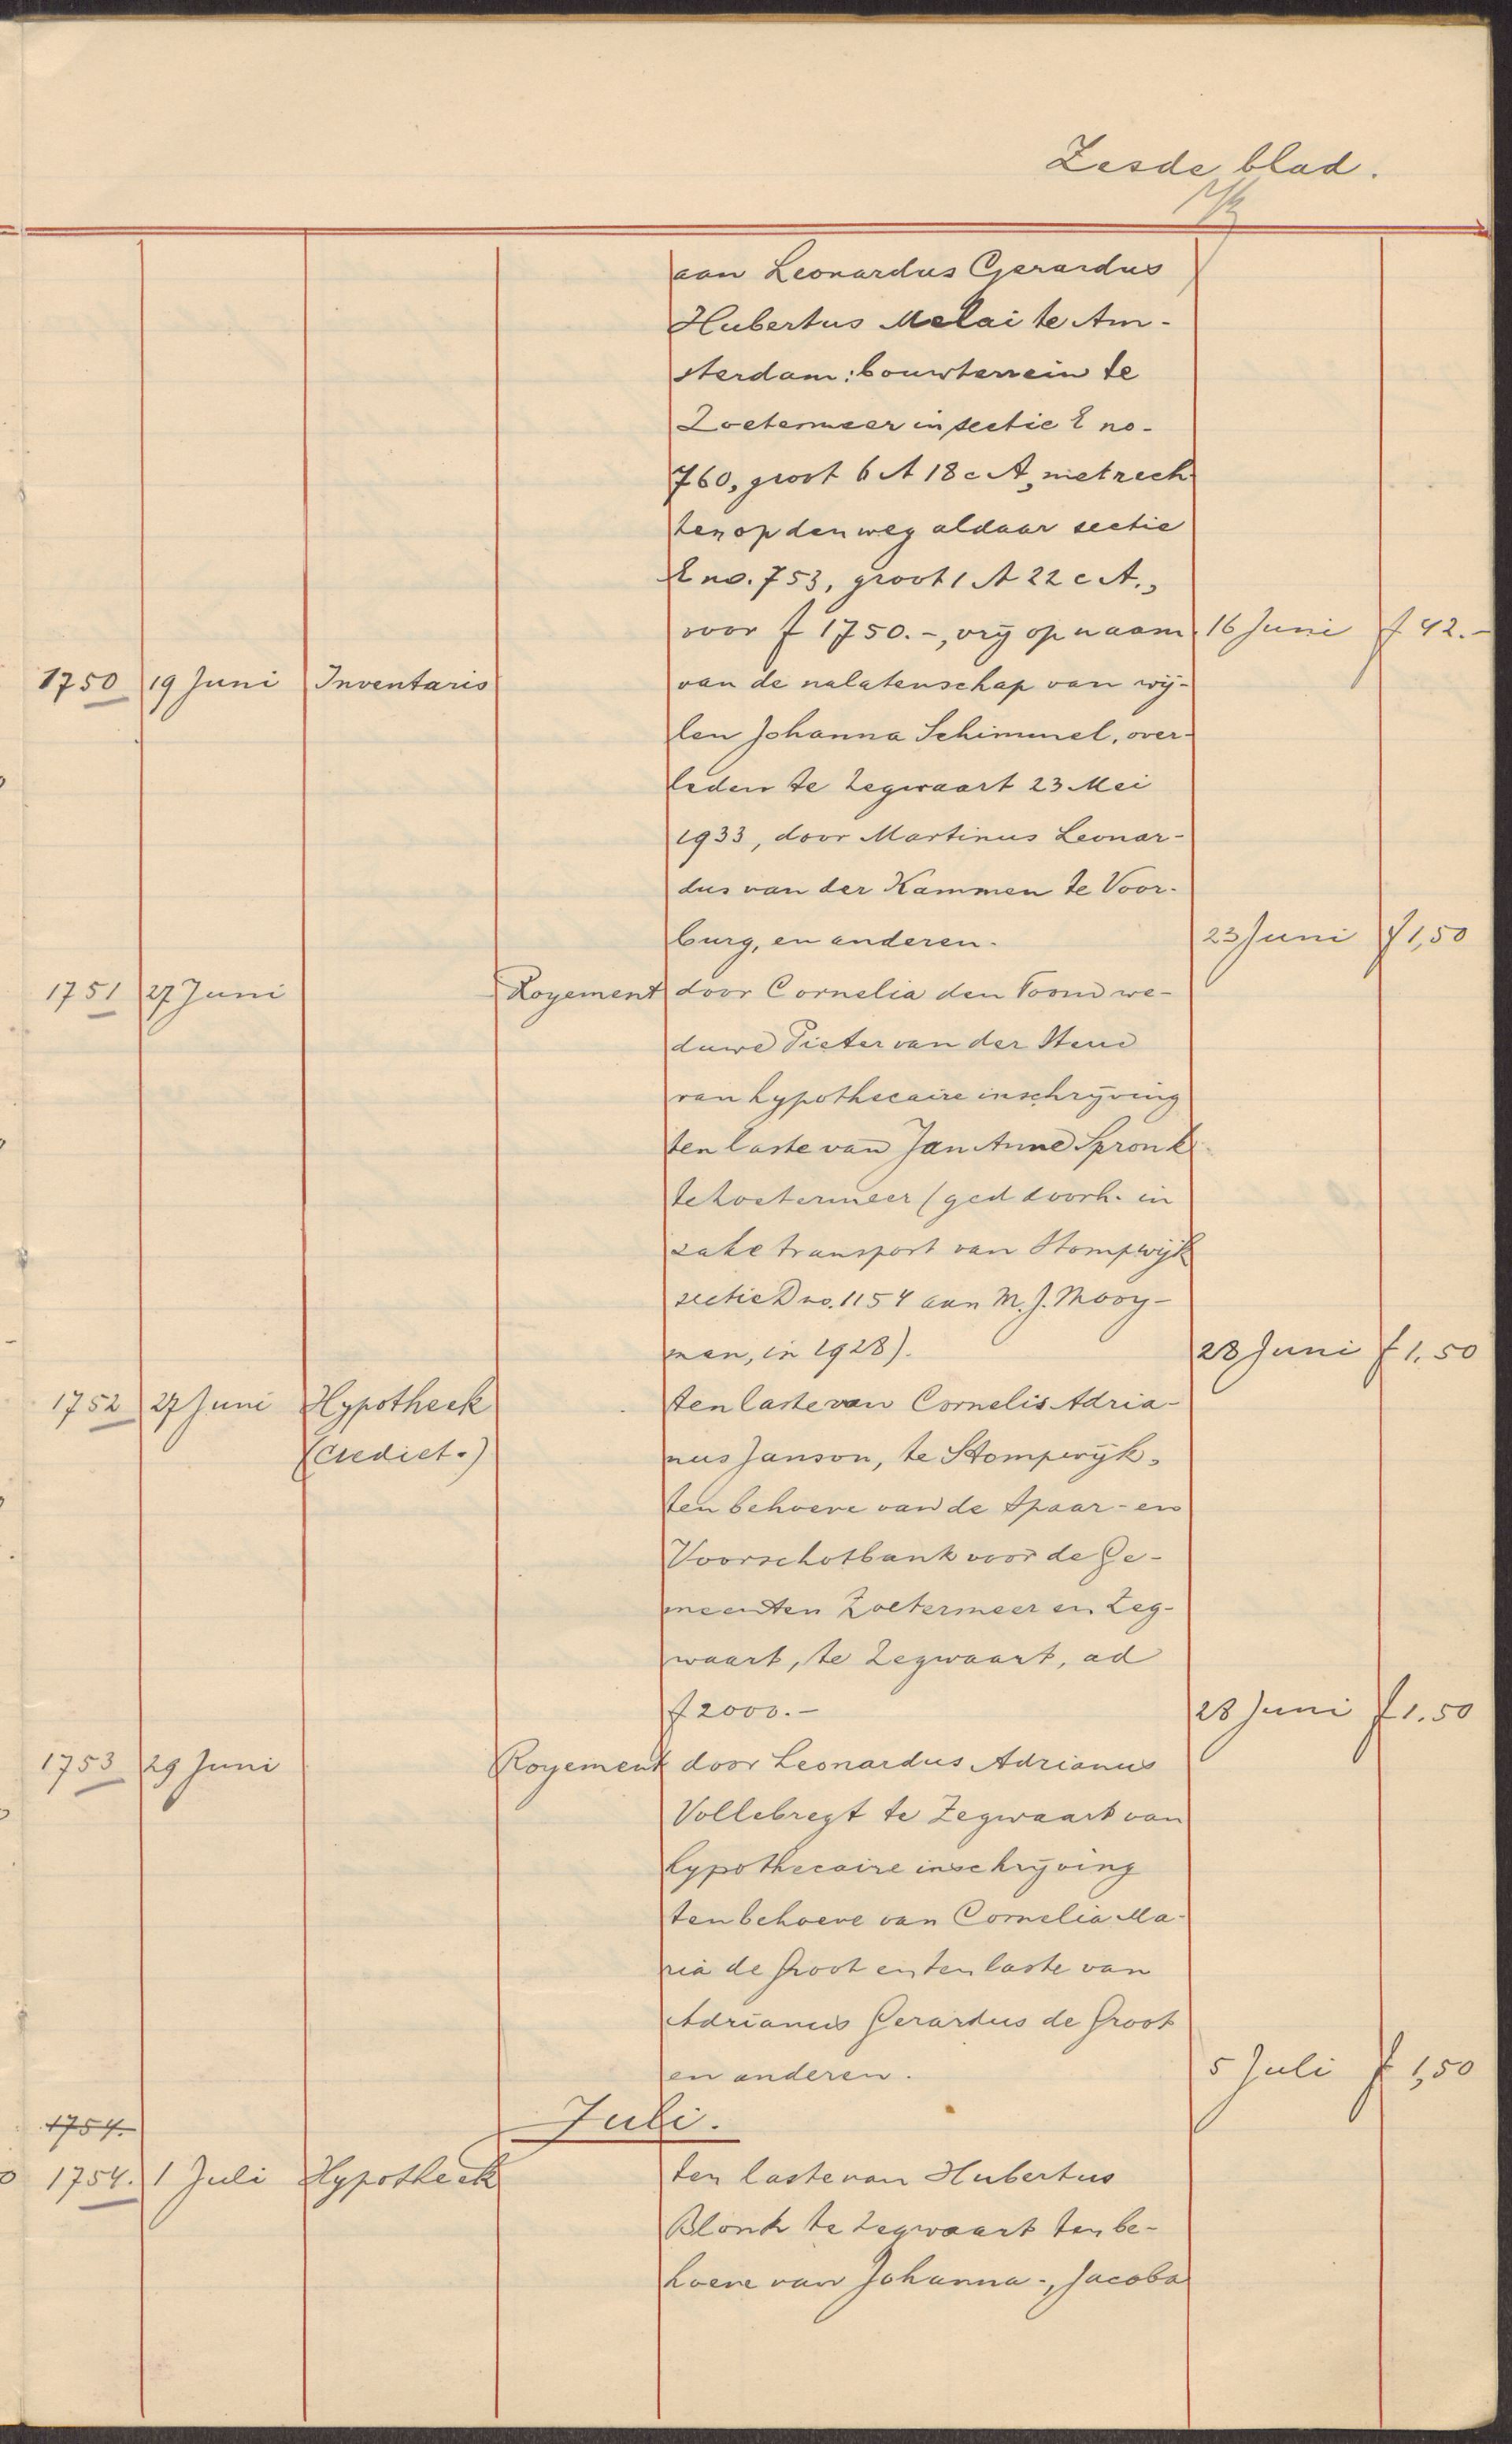 Zesde blad.
aan Leonardus Gerardus
Hubertus Melai te Am-
sterdam: bouwterrein te
Zoetermeer in sectie E no.
760, groot 6 A 18 cA, met rech
ten op den weg aldaar sectie
E no. 753, groot 1 A 22 cA.,
voor f 1750.-, vrij op naam 16 Juni f 42.-
1750 19 Juni Inventaris van de nalatenschap van wij-
len Johanna Schimmel, over-
leden te Zegwaart 23 Mei
1933, door Martinus Leonar-
dus van der Kammen te Voor-
burg, en anderen. 23 Juni f 1,50
1751 27 Juni Royement door Cornelia den we-
duwe Pieter van der
van hypothecaire inschrijving
ten laste van Jan Anne Spronk
te Zoetermeer (ged doorh. in
zake transport van Stompwijk
sectie D no. 1154 aan M. J. Mooy-
man, in 1928). 28 Juni f 1.50
1752 27 Juni Hypotheek ten laste van Cornelis Adria-
(Crediet.) nus Janson, te Stompwijk,
ten behoeve van de Spaar- en
Voorschotbank voor de Ge-
meenten Zoetermeer en Zeg-
waart, te Zegwaart, ad
f 2000.- 28 Juni f 1.50
1753 29 Juni Royement door Leonardus Adrianus
Vollebregt te Zegwaart van
hypothecaire inschrijving
ten behoeve van Cornelia Ma-
ria de Groot en ten laste van
Adrianus Gerardus de Groot
en anderen. 5 Juli f 1,50
1754. Juli.
1754. 1 Juli Hypotheek ten laste van Hubertus
Blonk te Zegwaart ten be-
hoeve van Johanna-, Jacoba